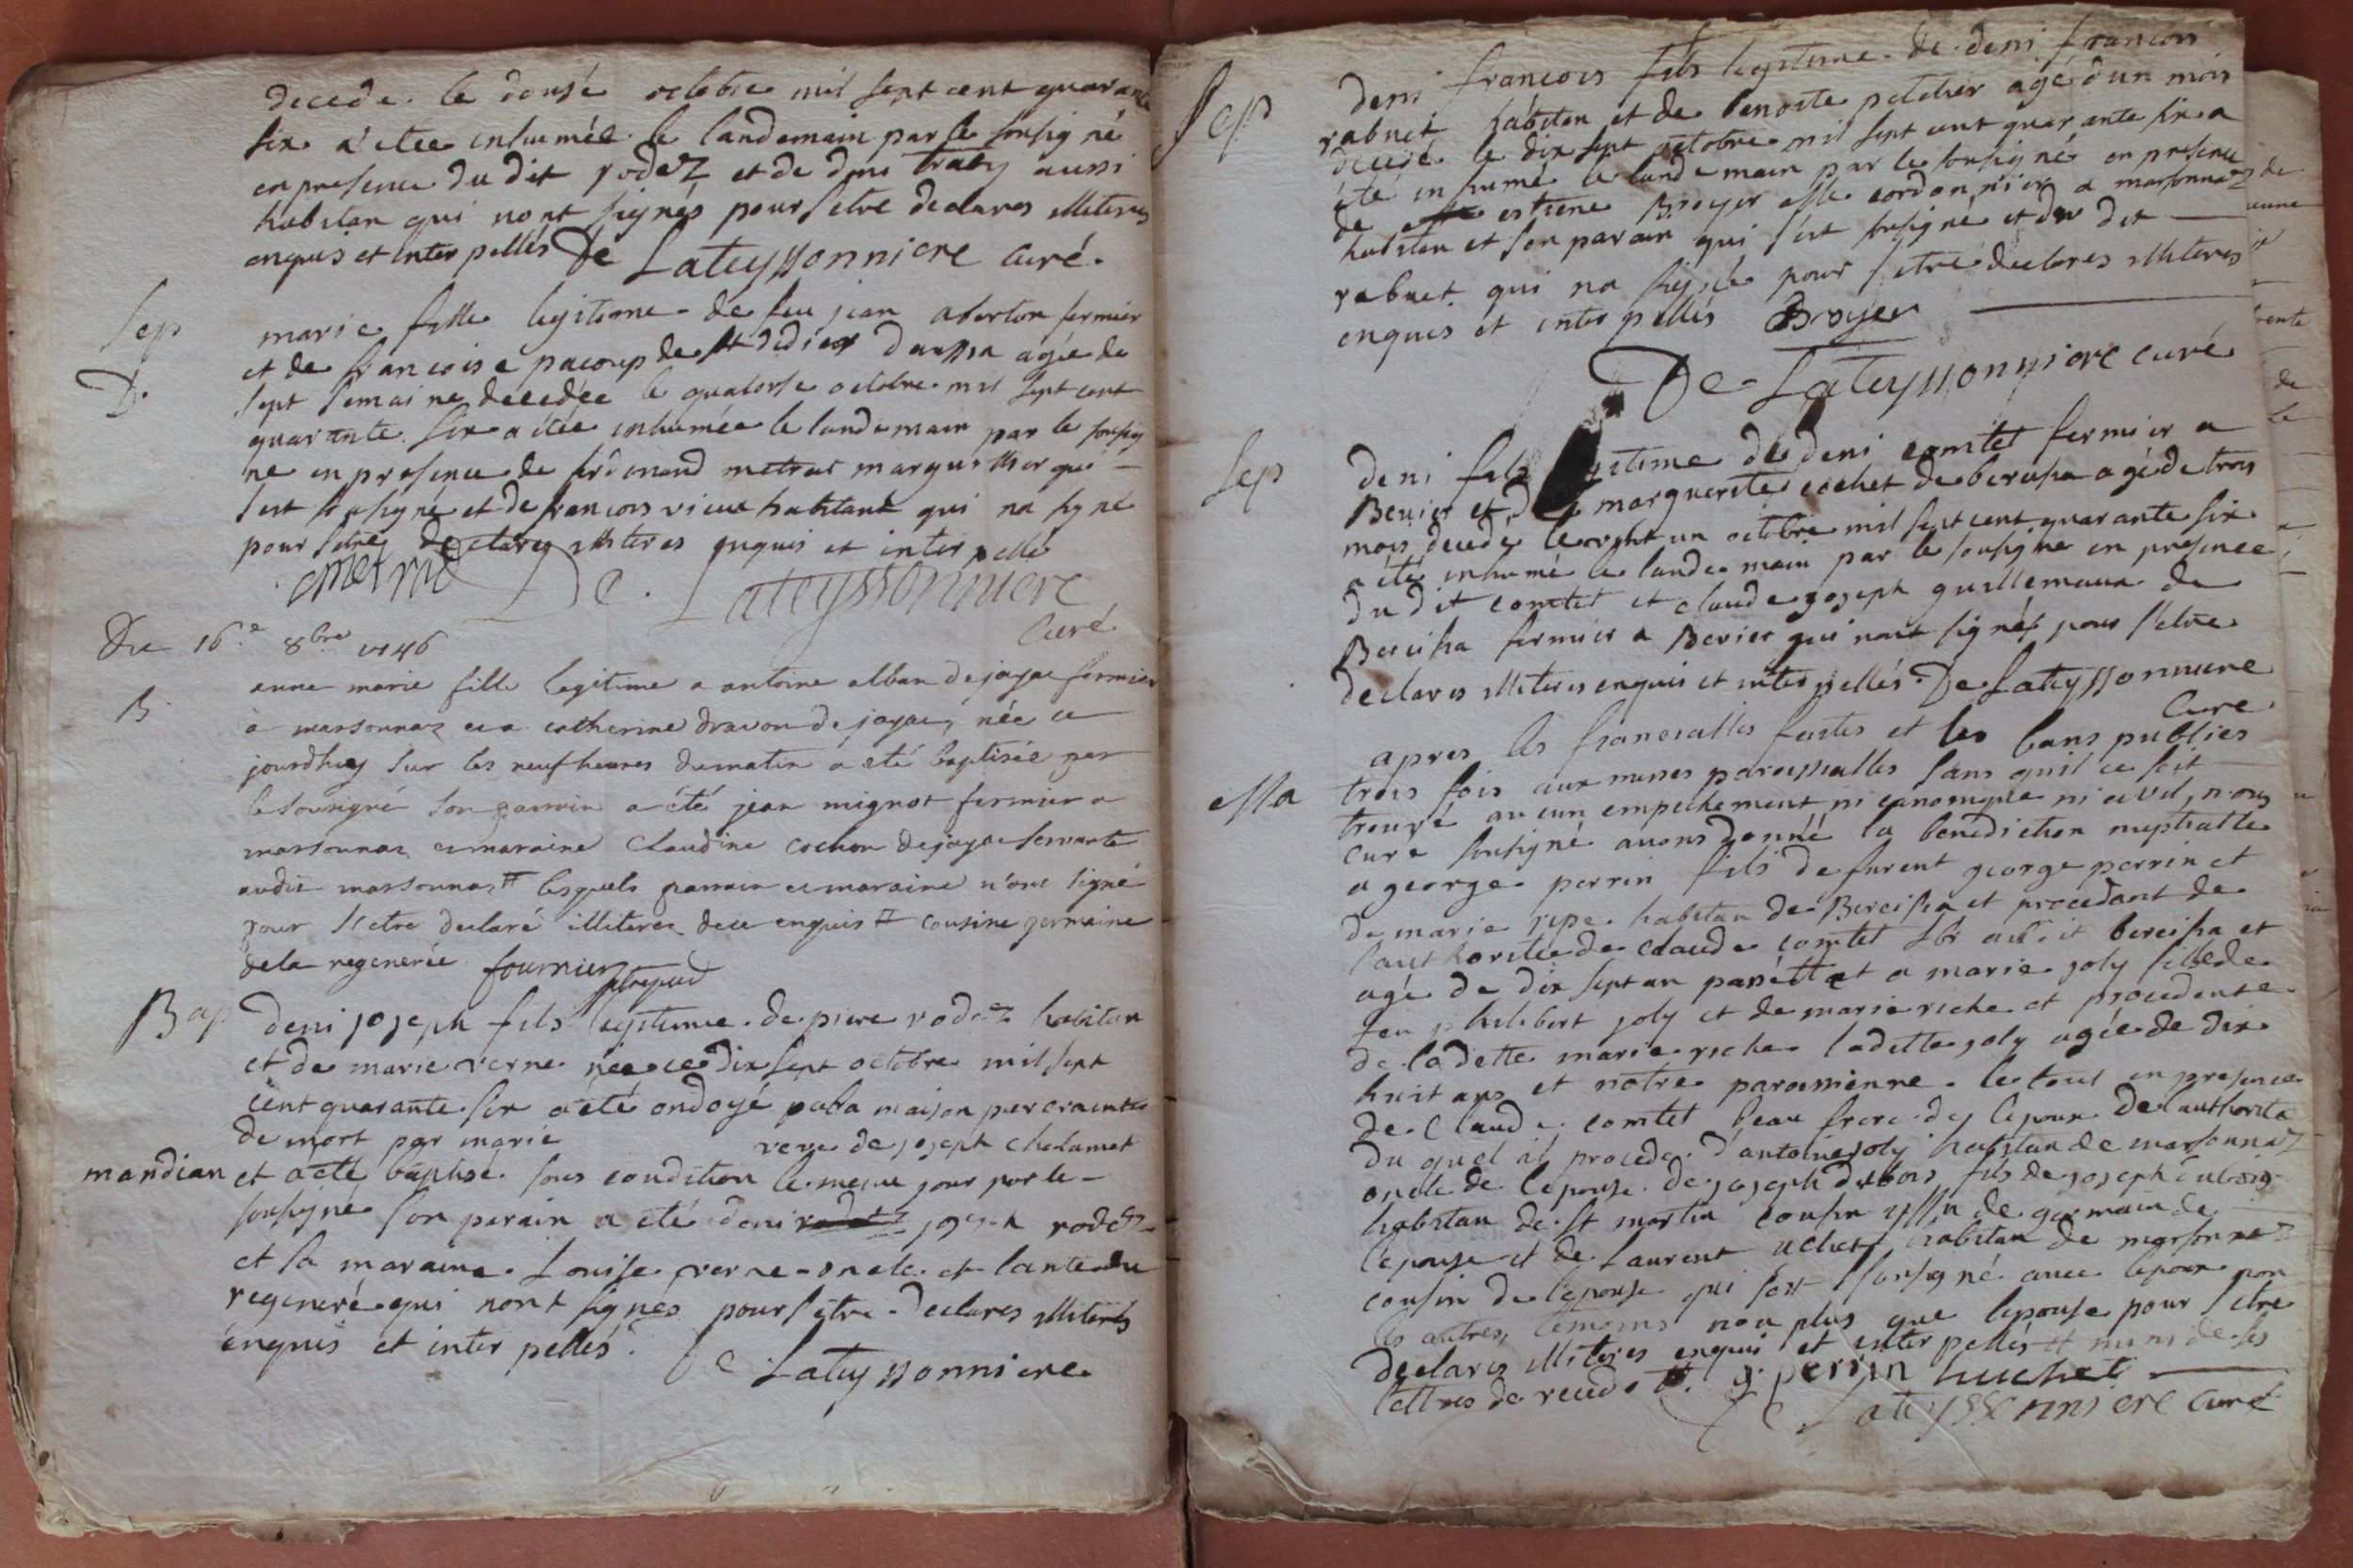 decede le douse octobre mil sept cent quarante
six a etee inhumée le landemain par le sousigné
en presence du dit rodez et de deni traby aussi
habitan qui nont signés pour setre declares illiteres
enquis et inter pellés De Lateyssonniere curé.
Sep
D.
marie fille legitime de feu jean aberton fermier
et de francoise pacoup de st didier daussia agée de
sept semaine decedée le quatorse octobre mil sept cent
quarante six a etée inhumée le landemain par le sousig
né en presence de ferdinand metrat marguillier qui
sest sousigné et de francois vieux habitant qui na signé
pour setre declares illiteres enquis et inter pellé
metrat De Lateyssonniere
Curé
Du 16e 8bre 1746
B.
anne marie fille legitime a antoine alban de jayac fermier
a marsonnaz et a catherine dravon de jayac, née ce
jourdhuy sur les neuf heures du matin a eté baptisée par
le sousigné son parrain a été jean mignot fermier a
marsonnaz et maraine Claudine cochon de jayac servante
audit marsonnaz # lesquels parrain et maraine n'ont signé
pour setre declaré illiteres de ce enquis # cousine germaine
de la regenerée fournier
Bap
deni joseph fils legitime de piere rodez habitan
et de marie verne née ce dix sept octobre mil sept
cent quarante six a eté ondoyé a la maison par crainte
de mort par marie veve de joseph chalamet
mandian et a eté baptisé sous condition le meme jour par le
sousigné son parain a eté deni rodet joseph rodez
et sa maraine Louise verne oncle et tante du
regeneré qui nont signés pour setre declares illiterés
enquis et inter pellés. De Lateyssonniere
Sep
deni francois fils legitime de deni francois
rabuet habitan et de benoite peletier agé dun mois
decedé le dix sept octobre mil sept cent quarante six a
été in humé le landemain par le sousigné en presence
de estiene Broyer cordonnier a marsonnaz
habitan et son parain qui sest sousigné et du dit
rabuet qui na signé pour setre declares illiteres
enquis et inter pellés Broyer
De Lateyssonniere curé
Sep
deni fils legitime de deni comtet fermier a
Bevier et de marguerite cochet de bereisia agé de trois
mois decedé le vint un octobre mil sept cent quarante six
a été inhumé le landemain par le sousigné en presence
du dit comtet et claude joseph guillemaux de
Bereisia fermier a Bevier qui nont signés pour setre
declares illiteres enquis et inter pellés De Lateyssonniere
Curé
Ma
apres les fiancialles faites et les bans publies
trois fois aux messes paroissialles sans quil ce soit
trouvé aucun empechement ni canonique ni civil, nous
curé sousigné avons donné la benediction nuptialle
a george perrin fils de furent george perrin et
de marie ripe habitan de Bereisia et procedant de
lauthoritée de claude comtet audit bereisia et
agé de dix sept an passé et a marie joly fille de
feu philibert joly et de marie riche et procedente
de ladette marie riche ladette joly agée de dix
huit ans et notre paroisienne. le tout en presence
de Claude comtet beau frere de lepoux de lauthorité
du quel il procede. d'antoine joly habitan de marsonnaz
oncle de lepouse de joseph dubois fils de joseph dubois
habitan de st martin cousin issu de germain de
lepouse et de laurent uchet habitan de marsonnaz
cousin de lepouse qui sest sousigné avec lepoux non
les autres temoins non plus que lepouse pour setre
declares illiteres enquis et inter pellés # muni de ses
lettres de recedo #. g perrin huchet
De Lateyssonniere curé